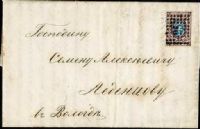 Господину
Семену Алексеевичу
Леденцову
въ Вологдѣ